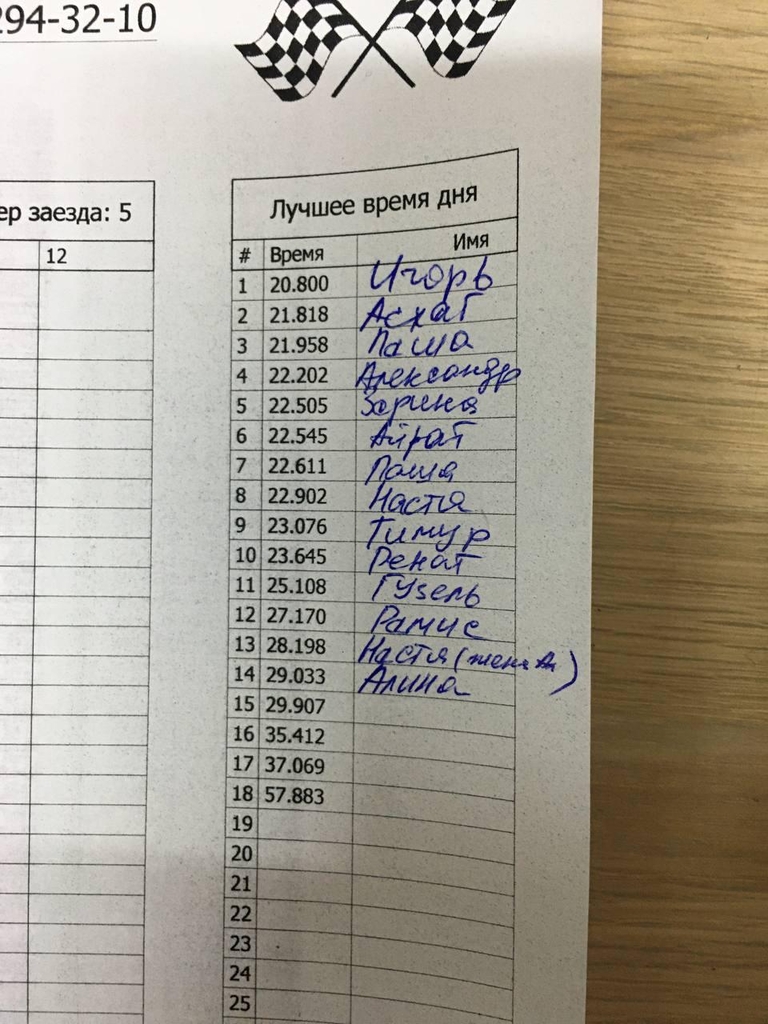 294-32-10
ер заезда: 5
12
Лучшее время дня
# Время Имя
1 20.800 Игорь
2 21.818 Асхат
3 21.958 Паша
4 22.202 Александр
5 22.505 Зарина
6 22.545 Айрат
7 22.611 Паша
8 22.902 Настя
9 23.076 Тимур
10 23.645 Ренат
11 25.108 Гузель
12 27.170 Рамис
13 28.198 Настя (жена )
14 29.033 Алина
15 29.907
16 35.412
17 37.069
18 57.883
19
20
21
22
23
24
25